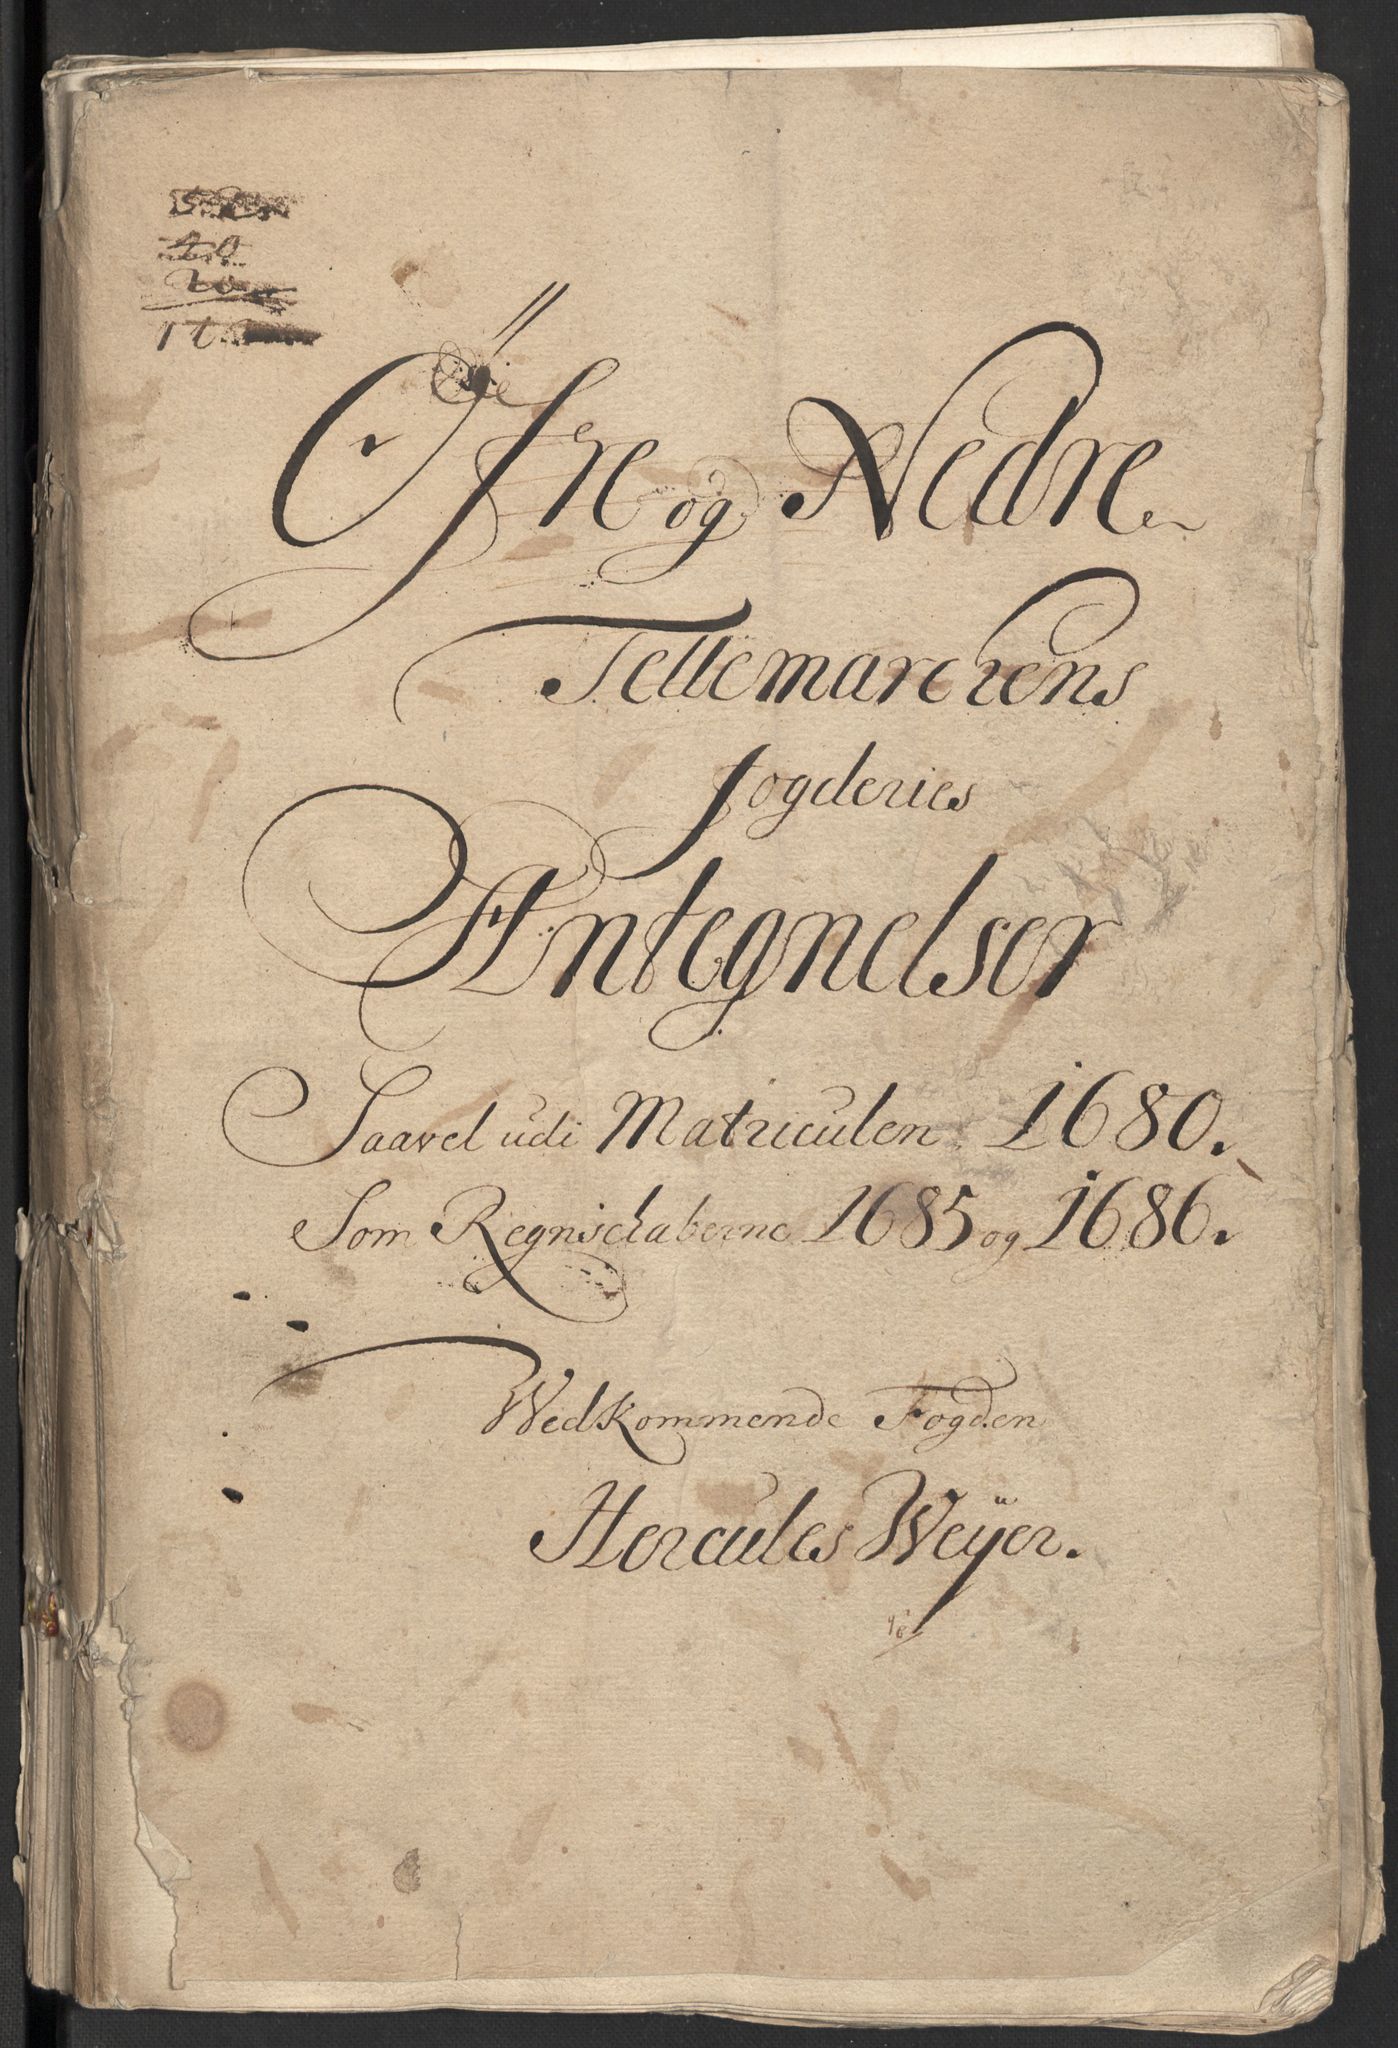 20
Øfre og Nedre
Tellemarchens
Fogderies
Antegnelser
Saavel udi Matriculen 1680.
Som Regnschaberne 1685 og 1686.
Wedkommende Fogden
Hercules Weÿer.